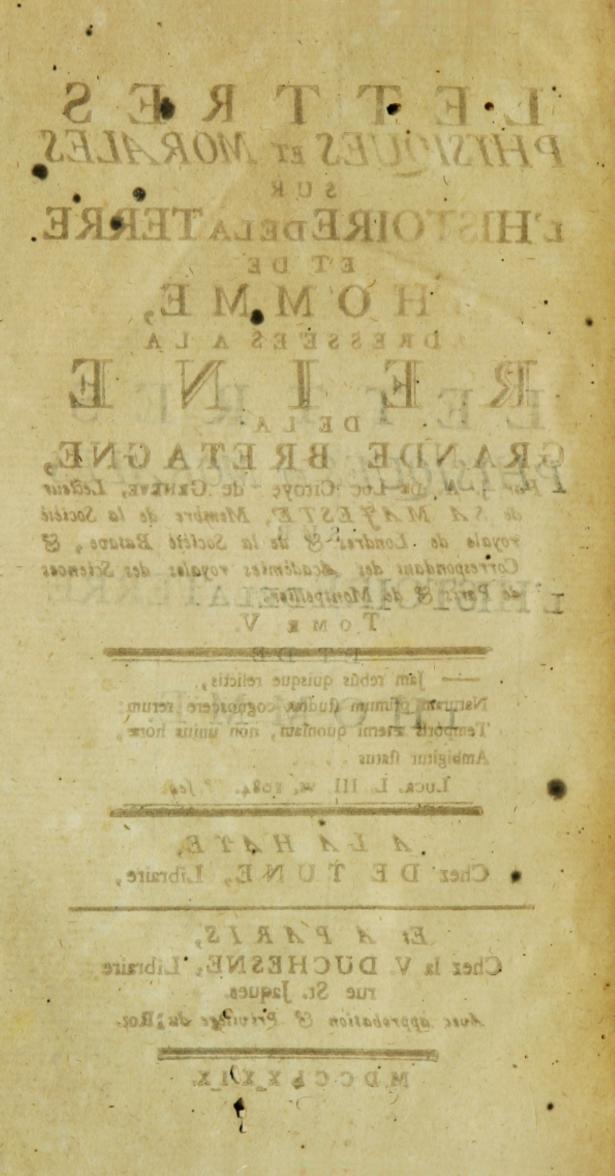 LETTRES
PHYSIQUES ET MORALES
SUR
L'HISTOIRE DE LA TERRE
ET DE
HOMME,
ADRESSÉES A LA
REINE
DE LA
GRANDE BRETAGNE,
Par J. A. DE LUC Citoye de GENEVE, Lecteur
de SA MAJESTÉ, Membre de la Société
royale de Londres & de la Société Batave, &
Correspondant des Académies royales des Sciences
de Paris & de Montpellier.
TOME V.
— Jam rebus quisque relictis,
Naturam primum studeat cognoscere rerum;
Temporis æterni quoniam, non unius horæ,
Ambigitur status . .
LUCR. L. III. vs. 1084.
A LA HAYE,
Chez DE TUNE, Libraire,
Et A PARIS,
Chez la V. DUCHESNE, Libraire
rue St. Jaques.
Avec approbation & Privilege du Roy.
MDCCLXXIX.